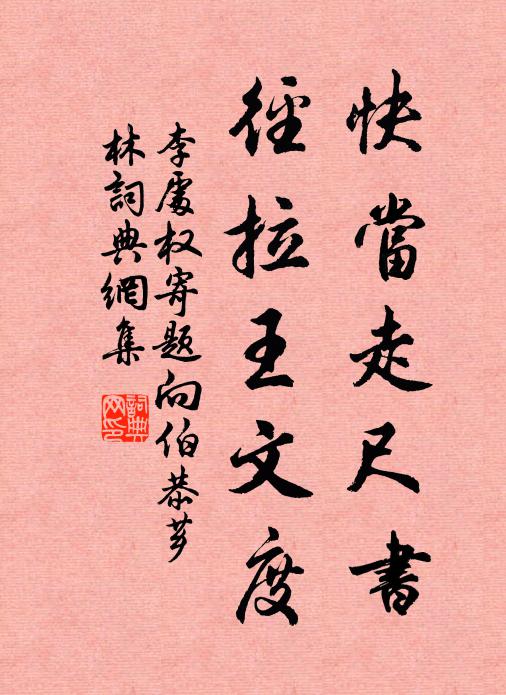 快當走尺書
徑拉王文度
李處权寄题向伯恭芗
林詞典網集
詞典网印